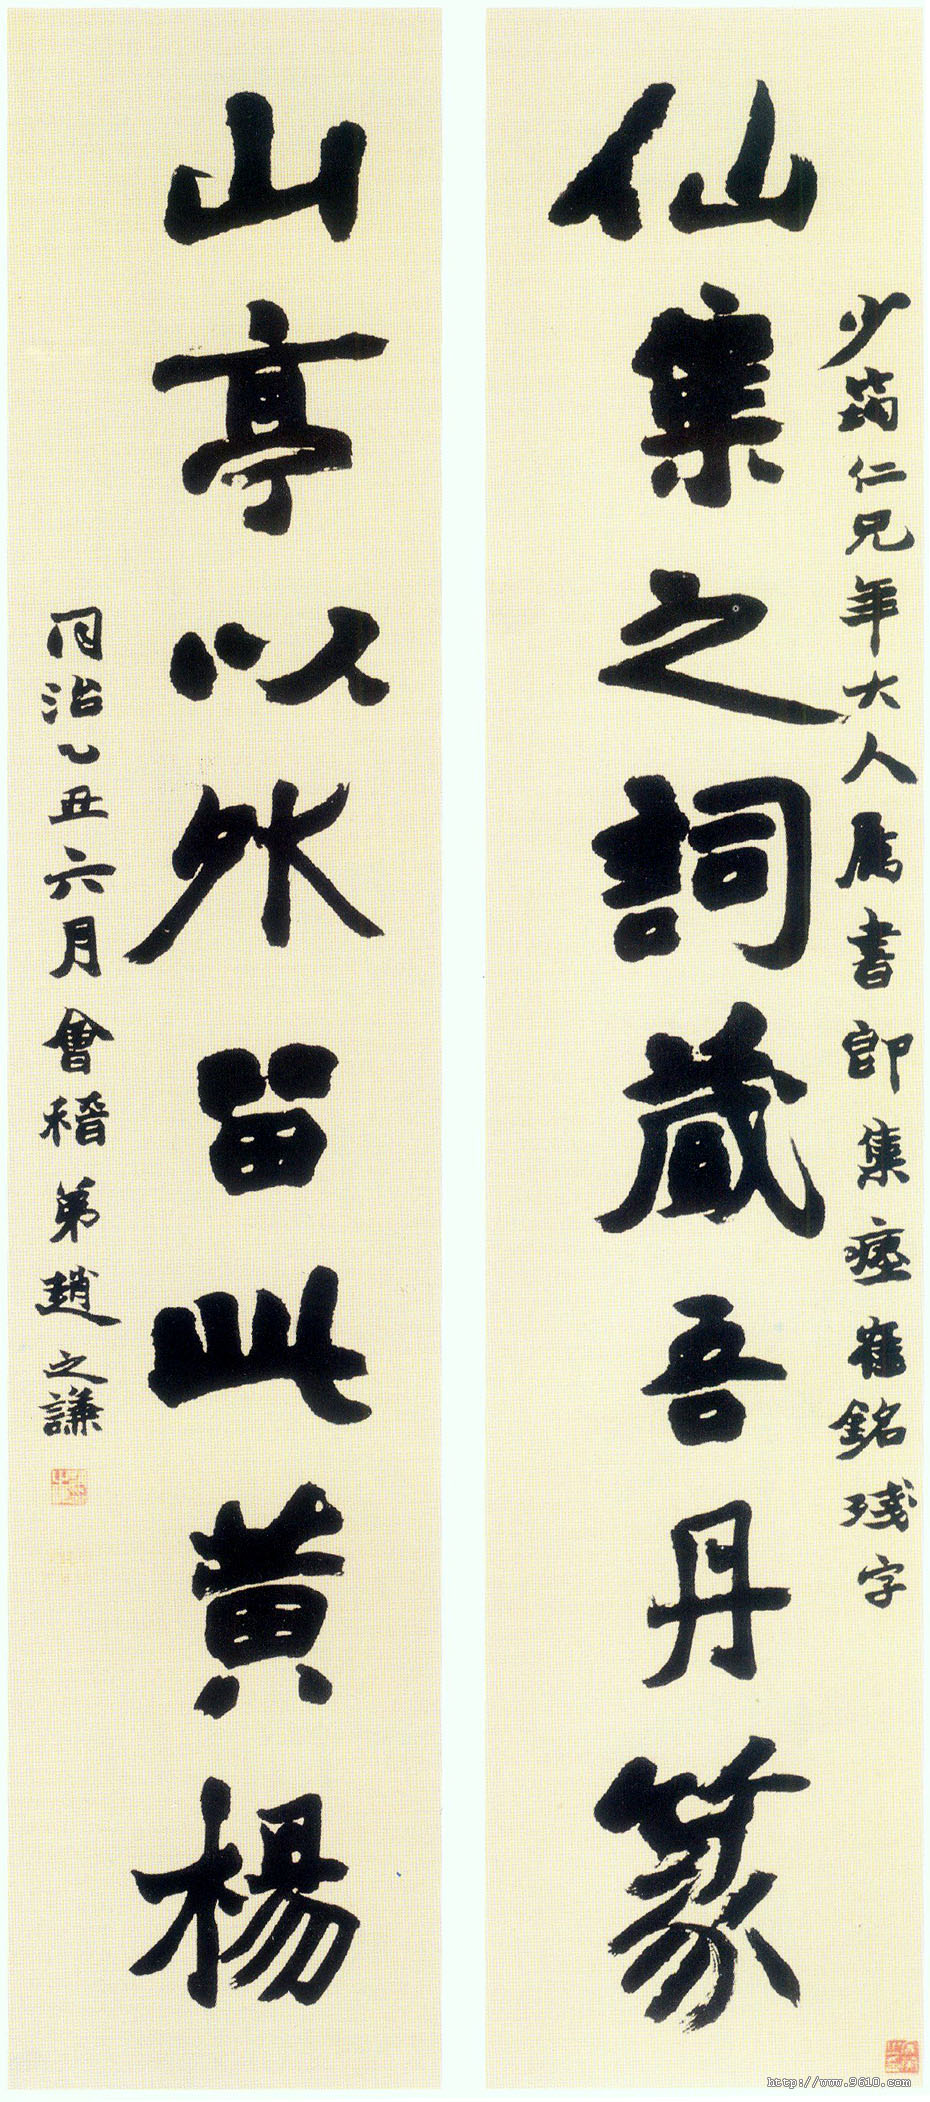 少筠仁兄年大人属書即集瘞鶴銘残字
仙集之詞藏吾丹篆
山亭以外留此黄楊
同治乙丑六月會稽弟趙之謙
http://www.9610.com